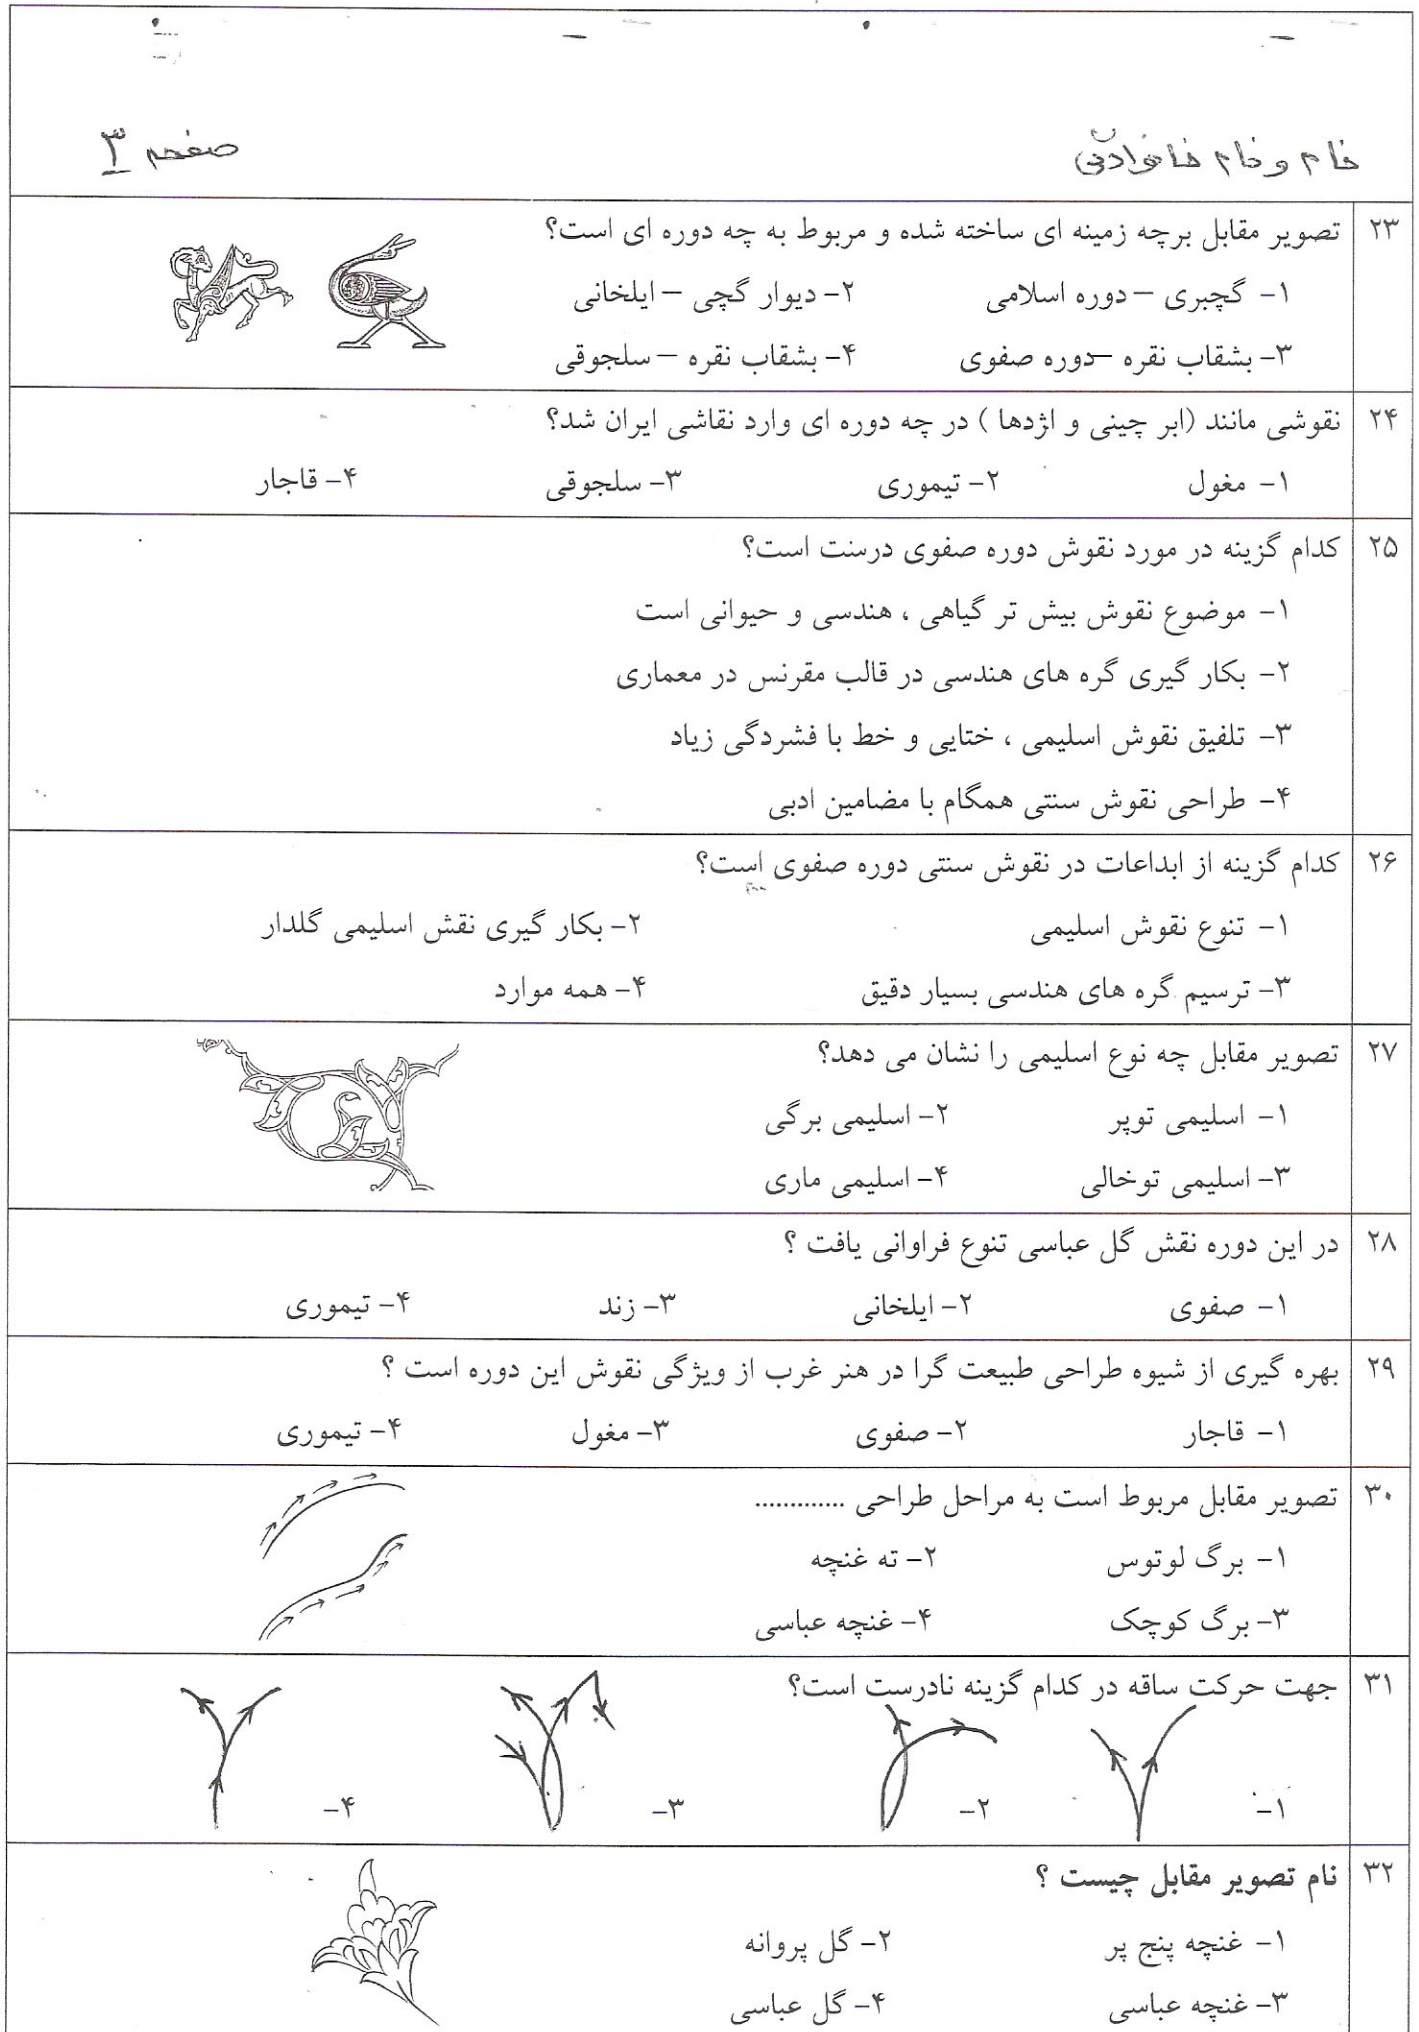 نام و نام خانوادگی
صفحه ۳
۲۳ تصویر مقابل برچه زمینه ای ساخته شده و مربوط به چه دوره ای است؟
۱- گچبری – دوره اسلامی ۲- دیوار گچی – ایلخانی
۳- بشقاب نقره – دوره صفوی ۴- بشقاب نقره – سلجوقی
۲۴ نقوشی مانند (ابر چینی و اژدها ) در چه دوره ای وارد نقاشی ایران شد؟
۱- مغول ۲- تیموری ۳- سلجوقی ۴- قاجار
۲۵ کدام گزینه در مورد نقوش دوره صفوی درست است؟
۱- موضوع نقوش بیش تر گیاهی ، هندسی و حیوانی است
۲- بکار گیری گره های هندسی در قالب مقرنس در معماری
۳- تلفیق نقوش اسلیمی ، ختایی و خط با فشردگی زیاد
۴- طراحی نقوش سنتی همگام با مضامین ادبی
۲۶ کدام گزینه از ابداعات در نقوش سنتی دوره صفوی است؟
۱- تنوع نقوش اسلیمی ۲- بکار گیری نقش اسلیمی گلدار
۳- ترسیم گره های هندسی بسیار دقیق ۴- همه موارد
۲۷ تصویر مقابل چه نوع اسلیمی را نشان می دهد؟
۱- اسلیمی توپر ۲- اسلیمی برگی
۳- اسلیمی توخالی ۴- اسلیمی ماری
۲۸ در این دوره نقش گل عباسی تنوع فراوانی یافت ؟
۱- صفوی ۲- ایلخانی ۳- زند ۴- تیموری
۲۹ بهره گیری از شیوه طراحی طبیعت گرا در هنر غرب از ویژگی نقوش این دوره است ؟
۱- قاجار ۲- صفوی ۳- مغول ۴- تیموری
۳۰ تصویر مقابل مربوط است به مراحل طراحی .............
۱- برگ لوتوس ۲- ته غنچه
۳- برگ کوچک ۴- غنچه عباسی
۳۱ جهت حرکت ساقه در کدام گزینه نادرست است؟
۱- ۲- ۳- ۴-
۳۲ نام تصویر مقابل چیست ؟
۱- غنچه پنج پر ۲- گل پروانه
۳- غنچه عباسی ۴- گل عباسی